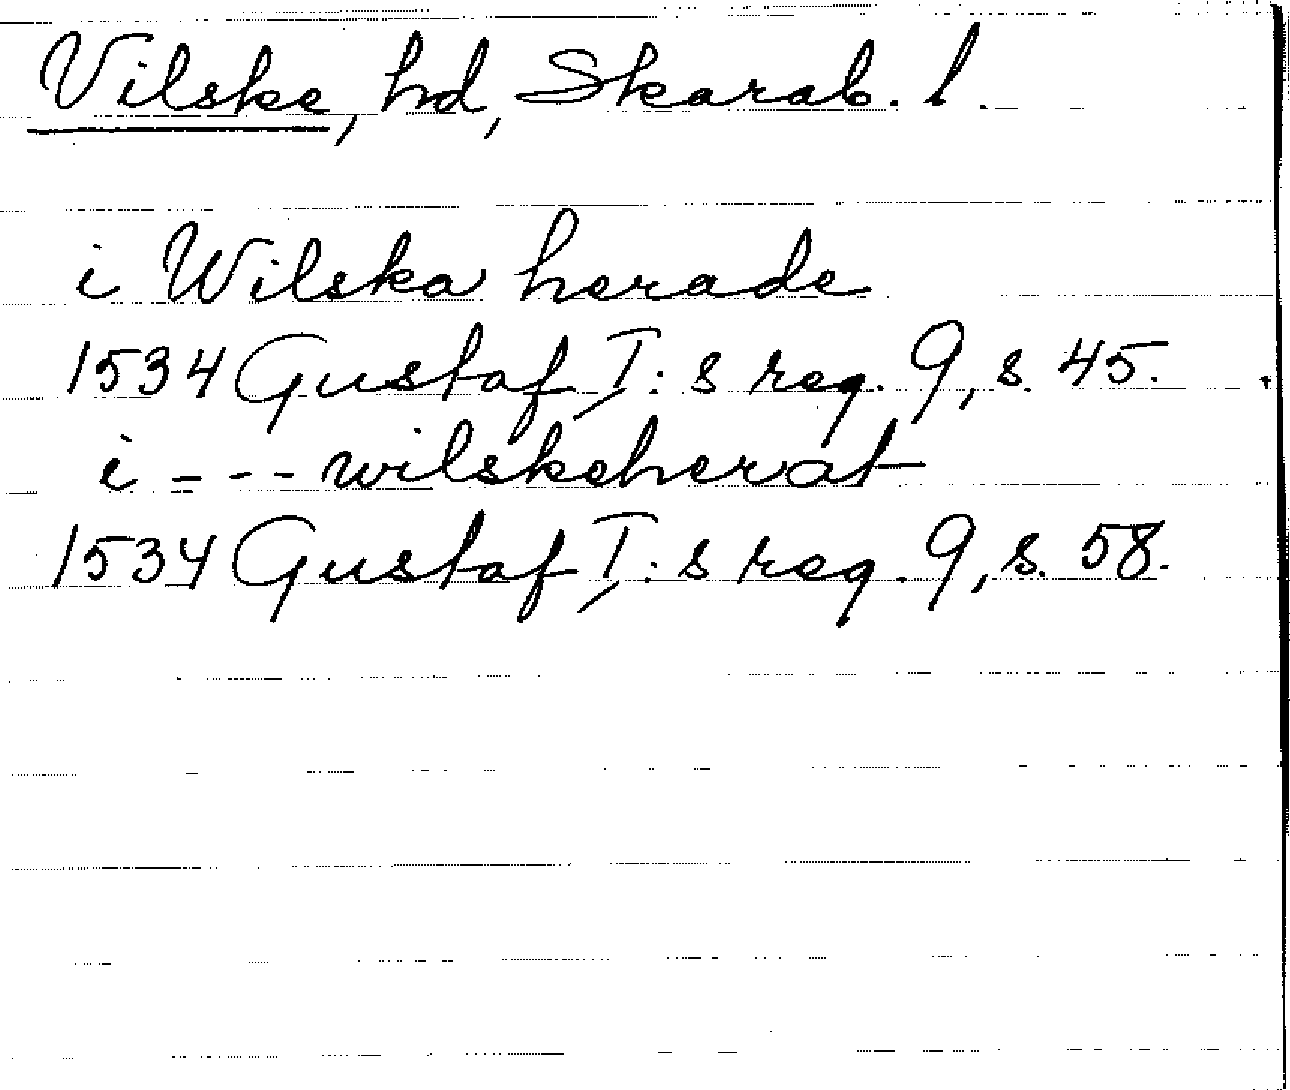 Vilske, hd, Skarab. l.
i Wilska herade
1534 Gustaf I:s reg. 9, s. 45.
i - - - wilskeherat
1534 Gustaf I:s reg. 9, s. 58.